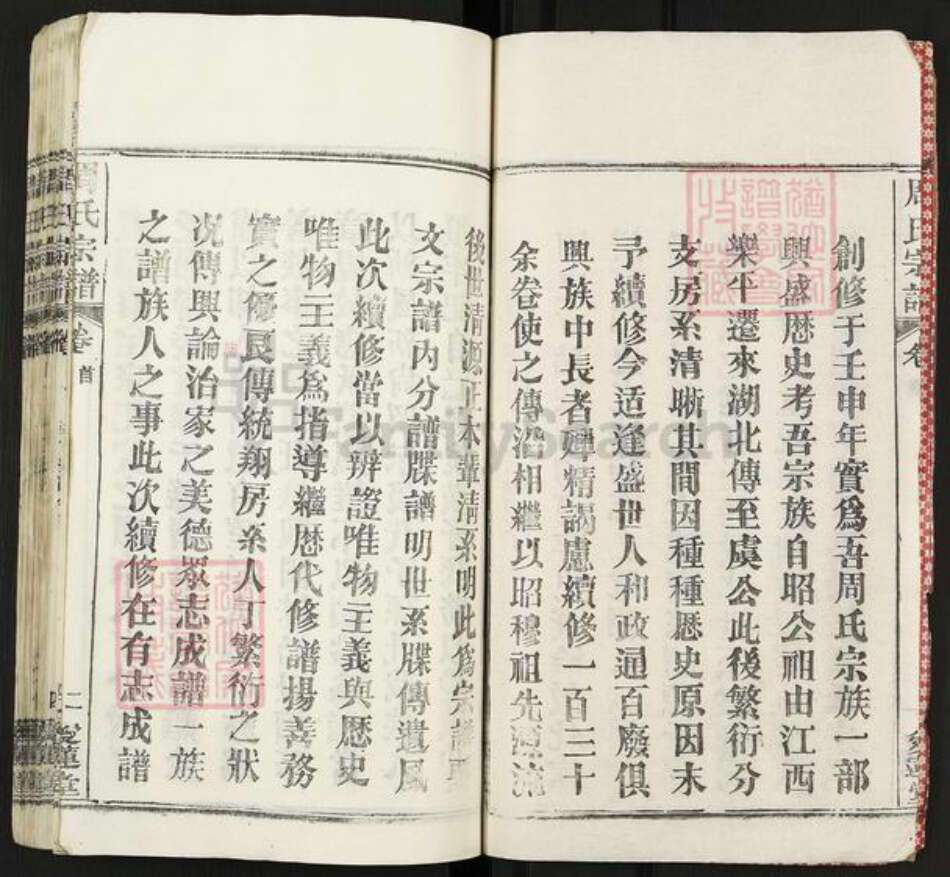 周氏宗譜 卷
創修于壬申年實爲吾周氏宗族一部
興盛歷史考吾宗族自昭公祖由江西
樂平遷來湖北傳至虞公此後繁衍分
支房系清晰其間因種種歷史原因未
予續修今适逢盛世人和政通百廢俱
興族中長者殫精謁慮續修一百三十
余卷使之傳沿相繼以昭穆祖先源流
後世清源正本輩清系明此爲宗譜
文宗譜内分譜牒譜明世系牒傳遺風
此次續修當以辨證唯物主義與歷史
唯物主義爲指導繼歷代修譜揚善務
實之優良傳統翔房系人丁繁衍之狀
况傳興論治家之美德眾志成譜一族
之譜族人之事此次續修在有志成譜
周氏宗譜 卷首
二 愛蓮堂
FamilySearch